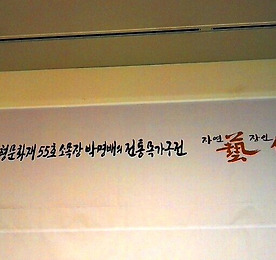 형문화재 55호 소목장 박명배의 전통목가구전
자연 藝 장인